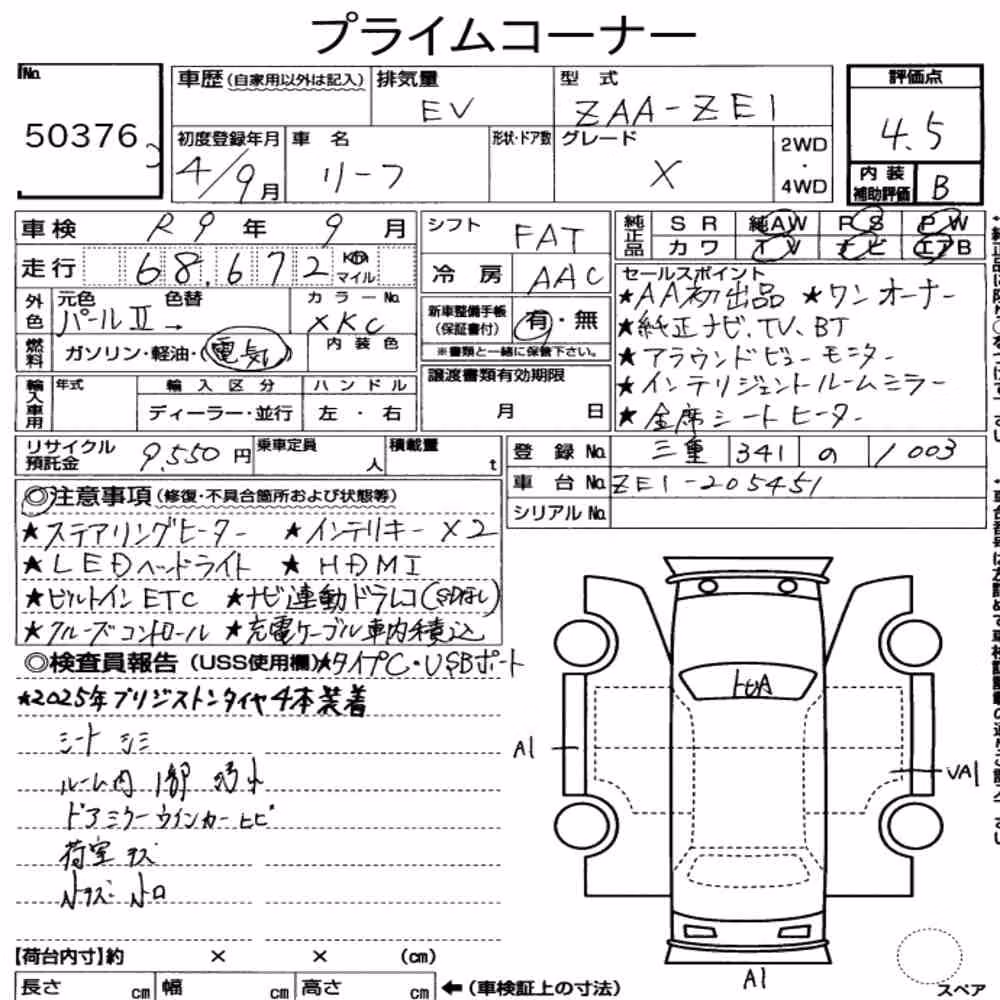 プライムコーナー
No. 50376
車歴(自家用以外は記入)
排気量 EV
型 式 ZAA-ZE1
評価点 4.5
初度登録年月 4/9月
車 名 リーフ
形状・ドア数
グレード X
2WD・4WD
内装補助評価 B
車検 R9年 9月
シフト FAT
純正品 SR 純AW PS PW
カワ TV ナビ エアB
走行 68,672 Km マイル
冷 房 AAC
セールスポイント
★AA初出品 ★ワンオーナー
★純正ナビ.TV、BT
★アラウンドビューモニター
★インテリジェントルームミラー
★全席シートヒーター
外色 元色 パールⅡ→ 色替
カラーNo. XKC
新車整備手帳(保証書付) 有・無
※書類と一緒に保管下さい。
燃料 ガソリン・軽油・(電気)
内装色
譲渡書類有効期限
月 日
輸入車用 年式 輸入区分 ハンドル
ディーラー・並行 左・右
リサイクル預託金 9,550円
乗車定員 人
積載量 t
登録No. 三重 341 の 1003
車台No. ZE1-205451
シリアルNo.
◎注意事項(修復・不具合箇所および状態等)
★ステアリングヒーター ★インテリキーX2
★LEDヘッドライト ★HDMI
★ビルトインETC ★ナビ連動ドラレコ(SDなし)
★クルーズコントロール ★充電ケーブル車内積込
◎検査員報告(USS使用欄)★タイプC・USBポート
★2025年ブリジストンタイヤ4本装着
シート シミ
ルーム内 1部
ドアミラーウインカーヒビ
荷室 キズ
小キズ 小凹
トビA
A1
VA1
A1
【荷台内寸】約 × × (cm)
長さ cm 幅 cm 高さ cm ←(車検証上の寸法)
スペア